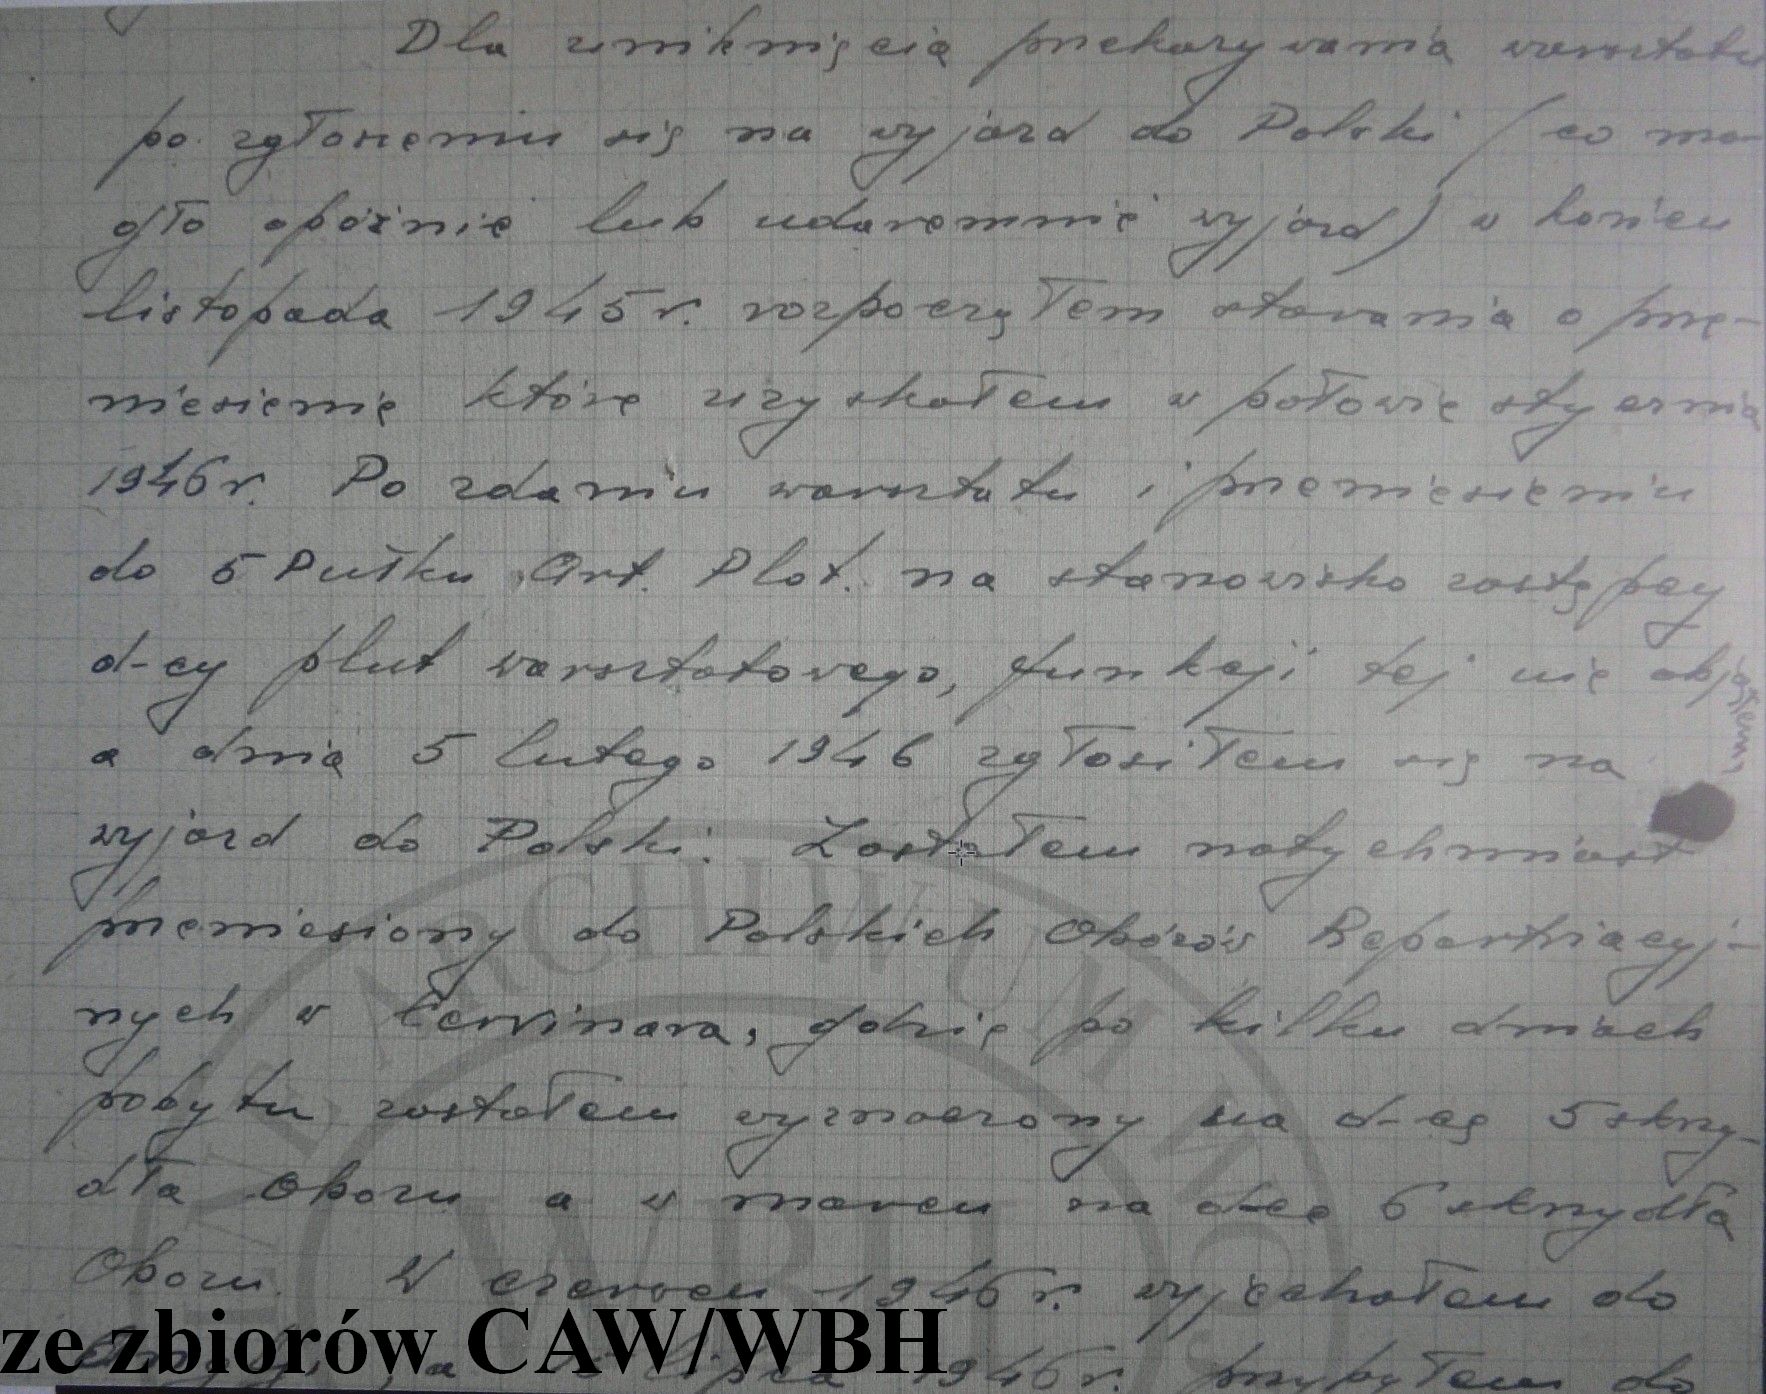 Dla uniknięcia przekazywania warsztatu
po zgłoszeniu się na wyjazd do Polski (co mo-
gło opóźnić lub udaremnić wyjazd) w końcu
listopada 1945 r. rozpocząłem starania o prze-
niesienie które uzyskałem w połowie stycznia
1946 r. Po zdaniu warsztatu i przeniesieniu
do 5 Pułku Art. Plot. na stanowisko zastępcy
d-cy plut warsztatowego, funkcji tej nie objąłem
a dnia 5 lutego 1946 zgłosiłem się na
wyjazd do Polski. Zostałem natychmiast
przeniesiony do Polskich Obozów Repartriacyj-
nych w Cervinara, gdzie po kilku dniach
pobytu zostałem wyznaczony na d-cę 5 skrzy-
dła Obozu a w marcu na d-cę 6 skrzydła
Obozu. W czerwcu 1946 r. wyjechałem do
a lipca 1946 r. przybyłem do
ze zbiorów CAW/WBH
ARCHIWUM
WBH